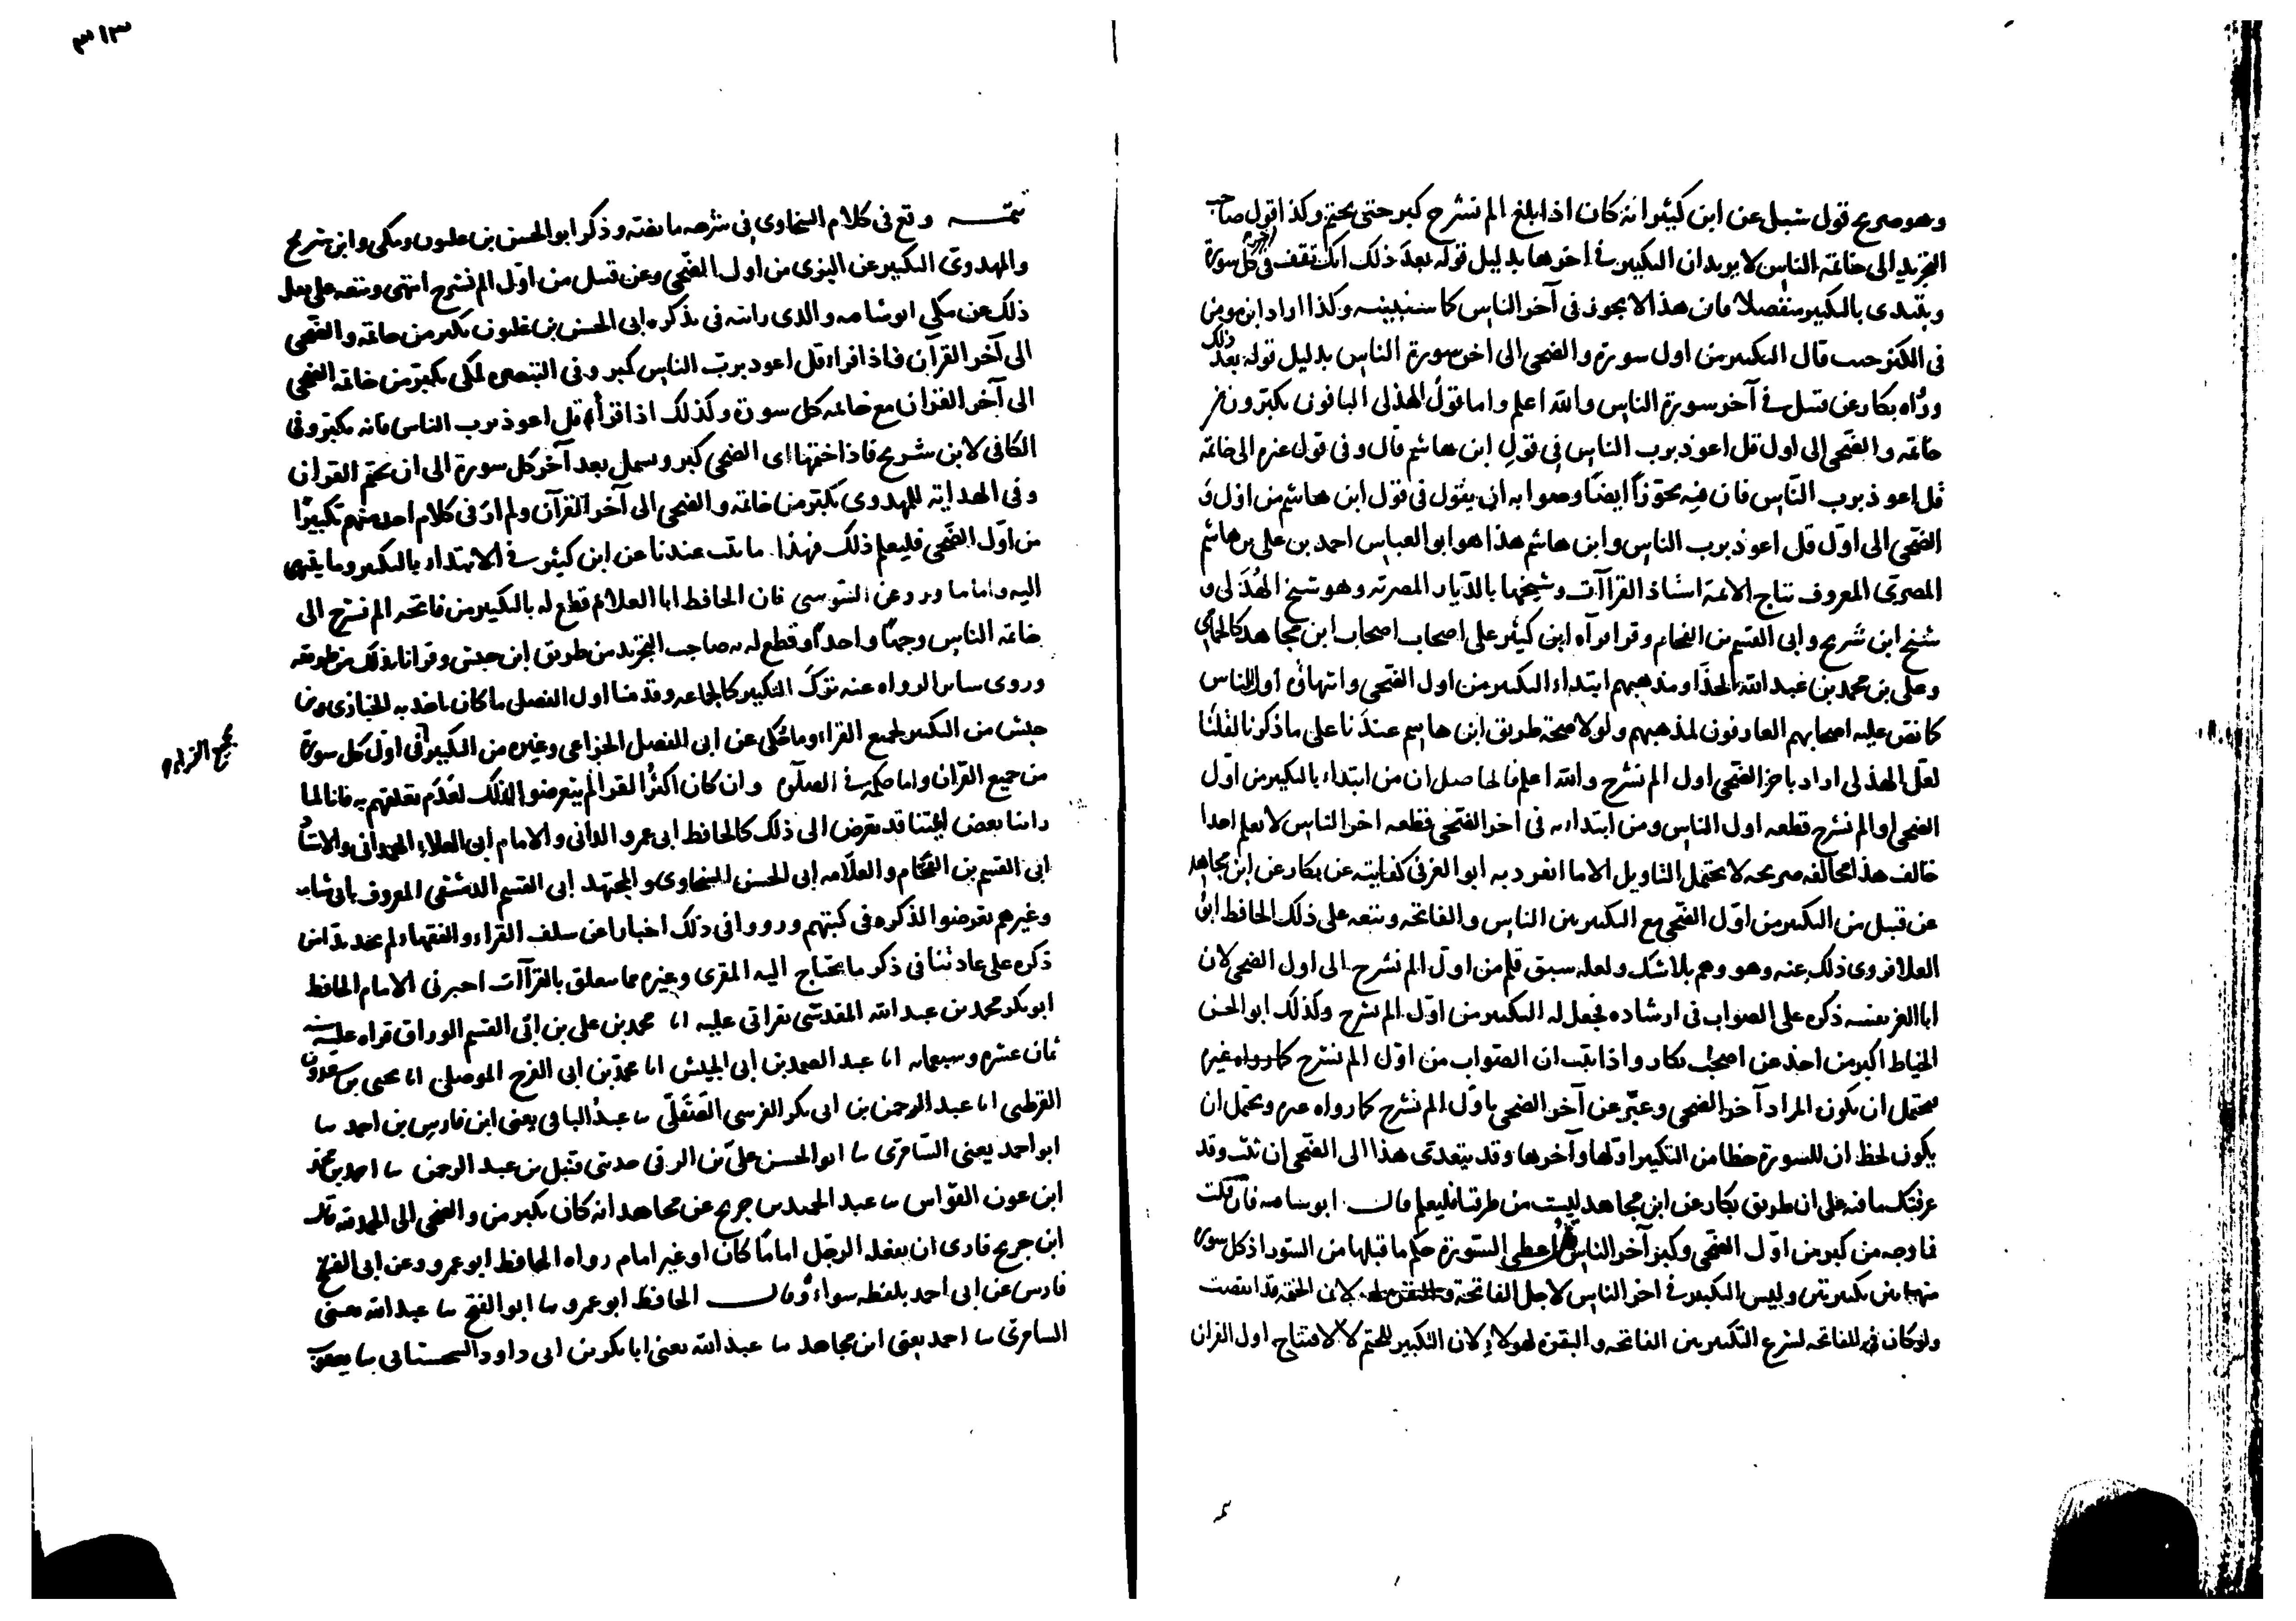 وهو صريح قول شبل عن ابن كثير انه كان اذا بلغ الم نشرح كبر حتى يختم وكذا قول صاحب
التجريد الى خاتمة الناس لا يريد ان التكبير في اخرها بدليل قوله بعد ذلك انك تقف في اخر كل سورة
وتبتدى بالتكبير منفصلا فان هذا لا يجوز في آخر الناس كما سنبينه وكذا اراد ابن مومن
في الكنز حيث قال التكبير من اول سورة والضحى الى اخر سورة الناس بدليل قوله بعد ذلك
ورواه بكار عن قنبل في آخر سورة الناس والله اعلم واما قول الهذلي الباقون يكبرون من
خاتمة والضحى الى اول قل اعوذ برب الناس في قول ابن هاشم قال وفي قول غيره الى خاتمة
قل اعوذ برب الناس فان فيه تجوزا ايضا وصوابه ان يقول في قول ابن هاشم من اول و
الضحى الى اول قل اعوذ برب الناس وابن هاشم هذا هو ابو العباس احمد بن علي بن هاشم
المصري المعروف بتاج الائمة استاذ القراآت وشيخها بالديار المصرية وهو شيخ الهذلي و
شيخ ابن شريح وابي القسم بن الفحام وقرا قراه ابن كثير على اصحاب اصحاب ابن مجاهد كالحمامي
وعلي بن محمد بن عبد الله الحذا ومذهبهم ابتداء التكبير من اول الضحى وانتهائه اول الناس
كما نص عليه اصحابهم العارفون لمذهبهم ولولا صحة طريق ابن هاشم عندنا على ما ذكرنا لقلنا
لعل الهذلي اراد باخر الضحى اول الم نشرح والله اعلم فالحاصل ان من ابتداء بالتكبير من اول
الضحى او الم نشرح قطعه اول الناس ومن ابتداء به في اخر الضحى قطعه اخر الناس لا نعلم احدا
خالف هذا مخالفه صريحه لا تحتمل التاويل الا ما انفرد به ابو العز في كفايته عن بكار عن ابن مجاهد
عن قنبل من التكبير من اول الضحى مع التكبير بين الناس والفاتحه وتبعه على ذلك الحافظ ابو
العلا فروى ذلك عنه وهو وهم بلا شك ولعله سبق قلم من اول الم نشرح الى اول الضحى لان
ابا العز نفسه ذكره على الصواب في ارشاده فجعل له التكبير من اول الم نشرح وكذلك ابو الحسن
الخياط اكبر من اخذ عن اصحاب بكار واذا ثبت ان الصواب من اول الم نشرح كما رواه غيره
يحتمل ان يكون المراد آخر الضحى وعبر عن آخر الضحى باول الم نشرح كما رواه غيره ويحتمل ان
يكون لحظ ان للسورة حظا من التكبير اولها وآخرها وقد يتعدى هذا الى الضحى ان ثبت وقد
عرفتك ما فيه على ان طريق بكار عن ابن مجاهد ليست من طرقنا فليعلم قال ابو شامه فان قلت
فما وجه من كبر من اول الضحى وكبر آخر الناس قلت اعطى السورة حكم ما قبلها من السور اذ كل سورة
منها بين تكبيرتين وليس التكبير في اخر الناس لاجل الفاتحة لان الختمة قد انقضت
ولو كان في الفاتحه لشرع التكبير بين الفاتحه والبقرة لهولاء لان التكبير للختم لا لافتتاح اول القران
٣١٣
تتمـــه وقع في كلام السخاوي في شرحه ما نصه وذكر ابو الحسن بن غلبون ومكي وابن شريح
والمهدوي التكبير عن البزي من اول الضحى وعن قنبل من اول الم نشرح انتهى وتبعه على نقل
ذلك عن مكي ابو شامه والذي رايته في تذكرة ابي الحسن بن غلبون يكبر من خاتمة والضحى
الى آخر القرآن فاذا قراء قل اعوذ برب الناس كبر وفي التبصره لمكي يكبر من خاتمه الضحى
الى آخر القران مع خاتمه كل سورة وكذلك اذا قرأ قل اعوذ برب الناس فانه يكبر وفي
الكافي لابن شريح فاذا ختمتها اى الضحى كبر وبسمل بعد آخر كل سورة الى ان يختم القران
وفي الهداية للمهدوي يكبر من خاتمه والضحى الى آخر القرآن ولم ار في كلام احد منهم تكبيرا
من اول الضحى فليعلم ذلك فهذا ما ثبت عندنا عن ابن كثير في الابتداء بالتكبير وما ينتهى
اليه واما ما ورد عن السوسي فان الحافظ ابا العلاء قطع له بالتكبير من فاتحه الم نشرح الى
خاتمه الناس وجها واحدا وقطع له به صاحب التجريد من طريق ابن حبش وقرانا بذلك من طريقه
وروى ساير الرواه عنه ترك التكبير كالجماعه وقد منا اول الفصل ما كان ياخذ به الخبازى وابن
حبش من التكبير لجميع القراء وما حكي عن ابي الفضل الخزاعي وغيره من التكبير في اول كل سورة
لجميع القراء
من جميع القران واما حكمه في الصلوة وان كان اكثر القرا لم يتعرضوا لذلك لعدم تعلقهم به فانا لما
راينا بعض ائمتنا قد تعرض الى ذلك كالحافظ ابي عمرو الداني والامام ابي العلاء الهمداني والاستاذ
ابي القسم بن الفحام والعلامه ابي الحسن السخاوي والمجتهد ابي القسم الدمشقي المعروف بابي شامه
وغيرهم تعرضوا لذكره في كتبهم ورووا في ذلك اخبارا عن سلف القراء والفقهاء لم نجد بدا من
ذكره على عادتنا في ذكر ما يحتاج اليه المقرى وغيره مما يتعلق بالقراآت اخبرني الامام الحافظ
ابو بكر محمد بن عبد الله المقدسي بقراتي عليه انا محمد بن علي بن ابي القسم الوراق قراه عليه سنه
ثمان عشرة وسبعمايه انا عبد الصمد بن ابي الجيش انا محمد بن ابي الفرج الموصلي انا يحيى بن سعدون
القرطبي انا عبد الرحمن بن ابي بكر القرشي الصقلي نا عبد الباقي يعني ابن فارس بن احمد نا
ابو احمد يعني السامري نا ابو الحسن علي بن الرقي حدثني قنبل بن عبد الرحمن نا احمد بن محمد
ابن عون القواس نا عبد الحميد بن جريج عن مجاهد انه كان يكبر من والضحى الى الحمد قال
ابن جريج فارى ان يفعله الرجل اماما كان او غير امام رواه الحافظ ابو عمرو عن ابي الفتح
فارس عن ابي احمد بلفظه سواء وقال الحافظ ابو عمرو نا ابو الفتح نا عبد الله يعني
السامري نا احمد يعني ابن مجاهد نا عبد الله يعني ابا بكر بن ابي داود السجستاني نا يعقوب